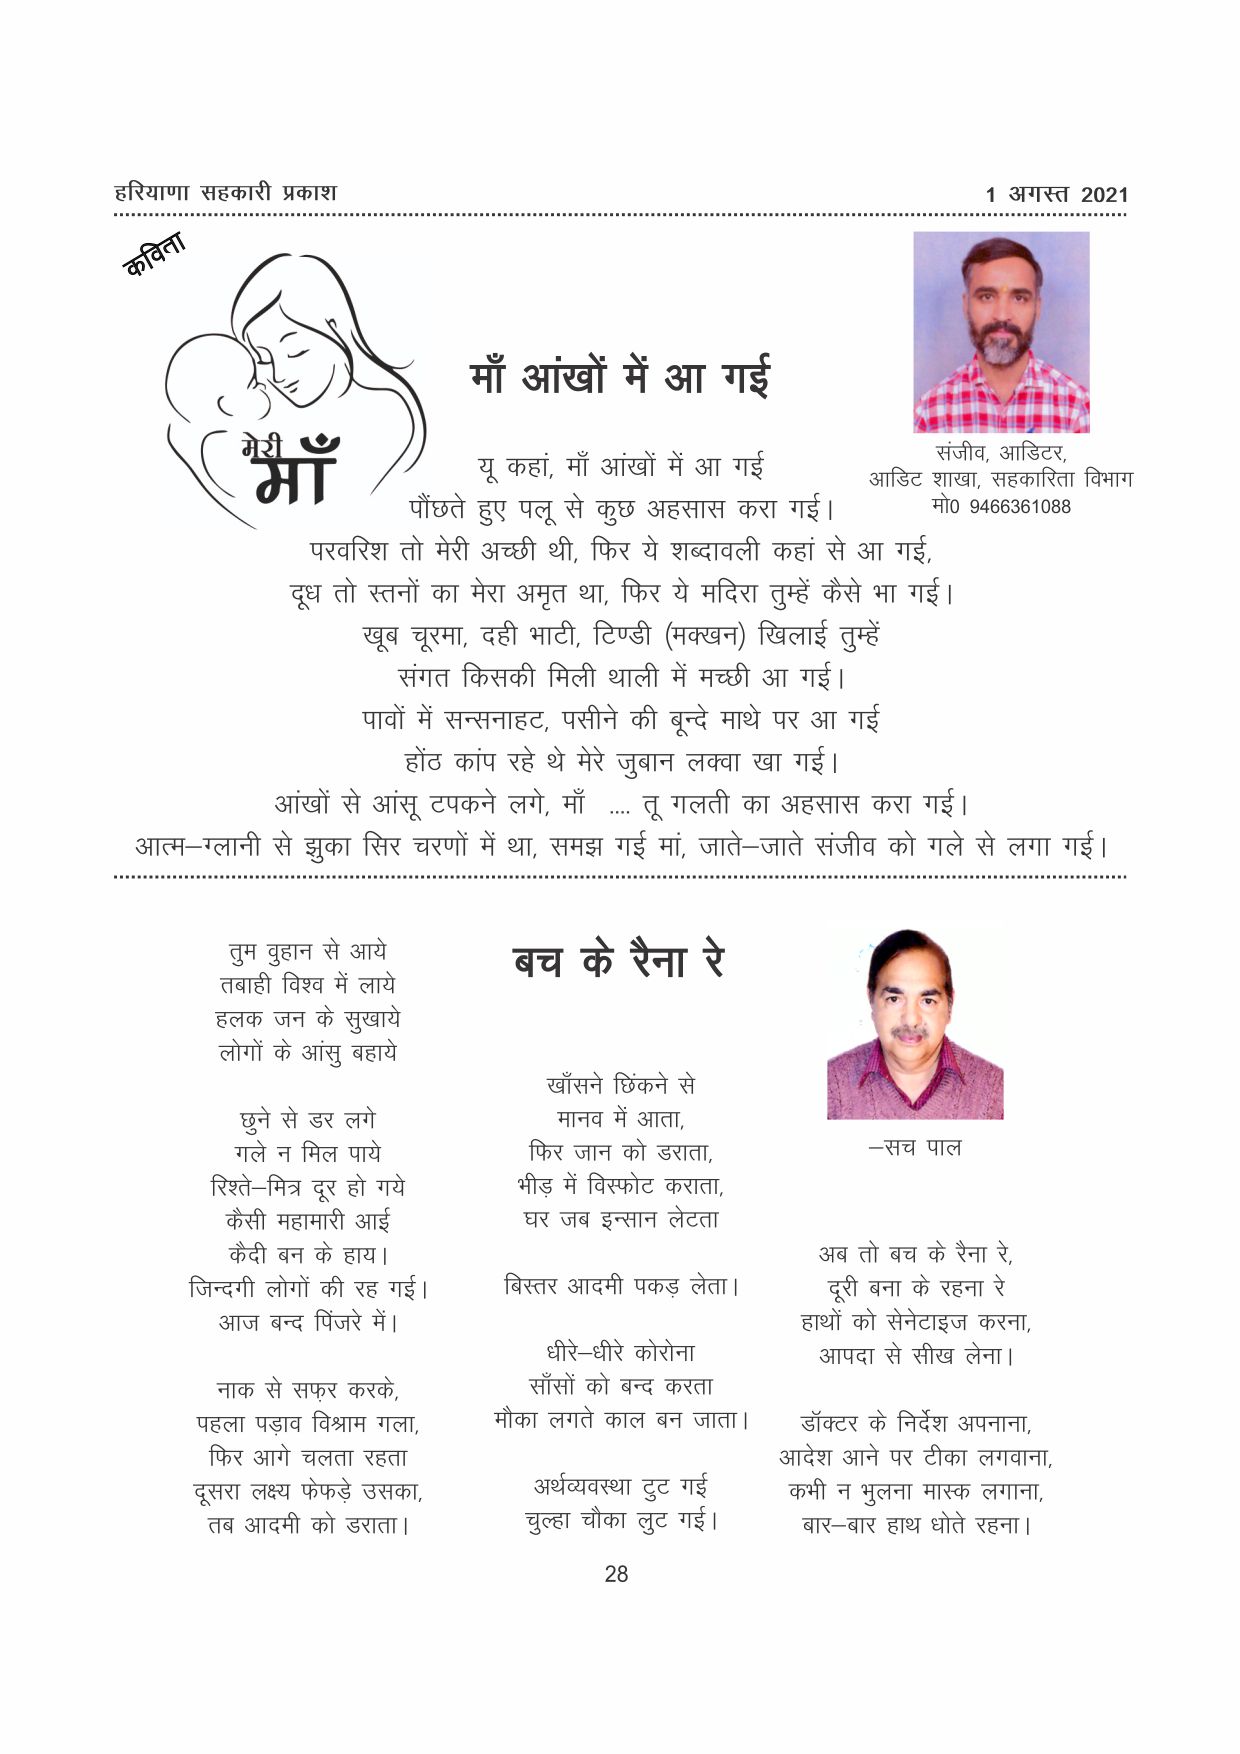 हरियाणा सहकारी प्रकाश
1 अगस्त 2021
कविता
मेरी
माँ
माँ आंखों में आ गई
संजीव, आडिटर,
आडिट शाखा, सहकारिता विभाग
मो0 9466361088
यू कहां, माँ आंखों में आ गई
पौंछते हुए पलू से कुछ अहसास करा गई।
परवरिश तो मेरी अच्छी थी, फिर ये शब्दावली कहां से आ गई,
दूध तो स्तनों का मेरा अमृत था, फिर ये मदिरा तुम्हें कैसे भा गई।
खूब चूरमा, दही भाटी, टिण्डी (मक्खन) खिलाई तुम्हें
संगत किसकी मिली थाली में मच्छी आ गई।
पावों में सन्सनाहट, पसीने की बून्दे माथे पर आ गई
होंठ कांप रहे थे मेरे जुबान लक्वा खा गई।
आंखों से आंसू टपकने लगे, माँ .... तू गलती का अहसास करा गई।
आत्म–ग्लानी से झुका सिर चरणों में था, समझ गई मां, जाते–जाते संजीव को गले से लगा गई।
बच के रैना रे
तुम वुहान से आये
तबाही विश्व में लाये
हलक जन के सुखाये
लोगों के आंसु बहाये
छुने से डर लगे
गले न मिल पाये
रिश्ते–मित्र दूर हो गये
कैसी महामारी आई
कैदी बन के हाय।
जिन्दगी लोगों की रह गई।
आज बन्द पिंजरे में।
नाक से सफ़र करके,
पहला पड़ाव विश्राम गला,
फिर आगे चलता रहता
दूसरा लक्ष्य फेफड़े उसका,
तब आदमी को डराता।
खाँसने छिंकने से
मानव में आता,
फिर जान को डराता,
भीड़ में विस्फोट कराता,
घर जब इन्सान लेटता
बिस्तर आदमी पकड़ लेता।
धीरे–धीरे कोरोना
साँसों को बन्द करता
मौका लगते काल बन जाता।
अर्थव्यवस्था टुट गई
चुल्हा चौका लुट गई।
–सच पाल
अब तो बच के रैना रे,
दूरी बना के रहना रे
हाथों को सेनेटाइज करना,
आपदा से सीख लेना।
डॉक्टर के निर्देश अपनाना,
आदेश आने पर टीका लगवाना,
कभी न भुलना मास्क लगाना,
बार–बार हाथ धोते रहना।
28